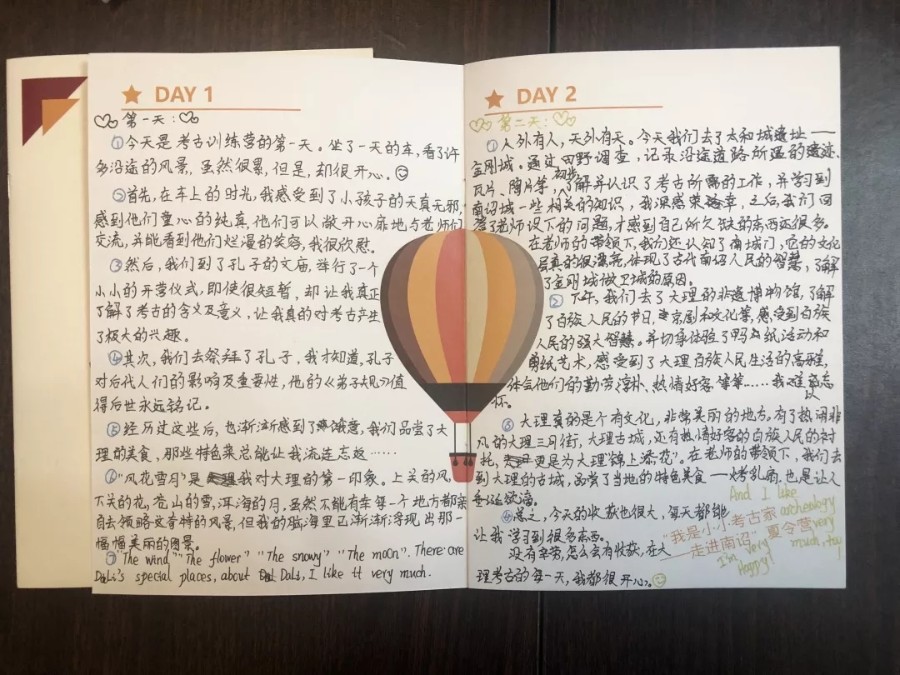 DAY 1
第一天:
①今天是考古训练营的第一天。坐了一天的车,看了许
多沿途的风景,虽然很累,但是,却很开心。
②首先,在车上的时光,我感受到了小孩子的天真无邪,
感到他们童心的纯真,他们可以敞开心扉地与老师们
交流,并能看到他们烂漫的笑容,我很欣慰。
③然后,我们到了孔子的文庙,举行了一个
小小的开营仪式,即使很短暂,却让我真正
了解了考古的含义及意义,让我真的对考古产生
了极大的兴趣。
④其次,我们去祭拜了孔子,我才知道,孔子
对后代人们的影响及重要性,他的《弟子规》值
得后世永远铭记。
⑤经历过这些后,也渐渐感到了饿意,我们品尝了大
理的美食,那些特色菜总能让我流连忘返……
⑥"风花雪月"是我对大理的第一印象。上关的风,
下关的花,苍山的雪,洱海的月,虽然不能有幸每一个地方都亲
自去领略这奇特的风景,但我的脑海里已渐渐浮现出那一
幅幅美丽的图景。
⑦"The wind" "The flower" "The snowy" "The moon". There are
DaLi's special places, about DaLi, I like it very much.
DAY 2
第二天:
①人外有人,天外有天。今天我们去了太和城遗址——
金刚城。通过田野调查,记录沿途道路所遇的遗迹、
瓦片、陶片等,初步了解并认识了考古所需的工作,并学习到
南诏城一些相关的知识,我深感荣幸,之后,我们回
答了老师设下的问题,才感到自己所欠缺的东西还很多。
在老师的带领下,我们还认知了南城门,它的文化
层真的很漂亮,体现了古代南诏人民的智慧,了解
了金刚城做卫城的原因。
②下午,我们去了大理的非遗博物馆,了解
了白族人民的节日,京剧和文化等,感受到白族
人民的强大智慧。并切身体验了甲马纸活动和
剪纸艺术,感受到了大理白族人民生活的高雅,
体会他们的勤劳淳朴、热情好客等等……我难以忘
怀。
③大理真的是个有文化,非常美丽的地方。有了热闹非
凡的大理三月街,大理古城,还有热情好客的白族人民的衬
托,更是为大理"锦上添花"。在老师的带领下,我们去
到大理的古城,品尝了当地的特色美食——烤乳扇,也是让人
④总之,今天的收获也很大,每天都能
让我学习到很多东西。
没有辛劳,怎么会有收获,在大
理考古的每一天,我都很开心。
And I like
archeology
very
much, too!
"我是小小考古家
走进南诏"夏令营
I'm very
Happy!